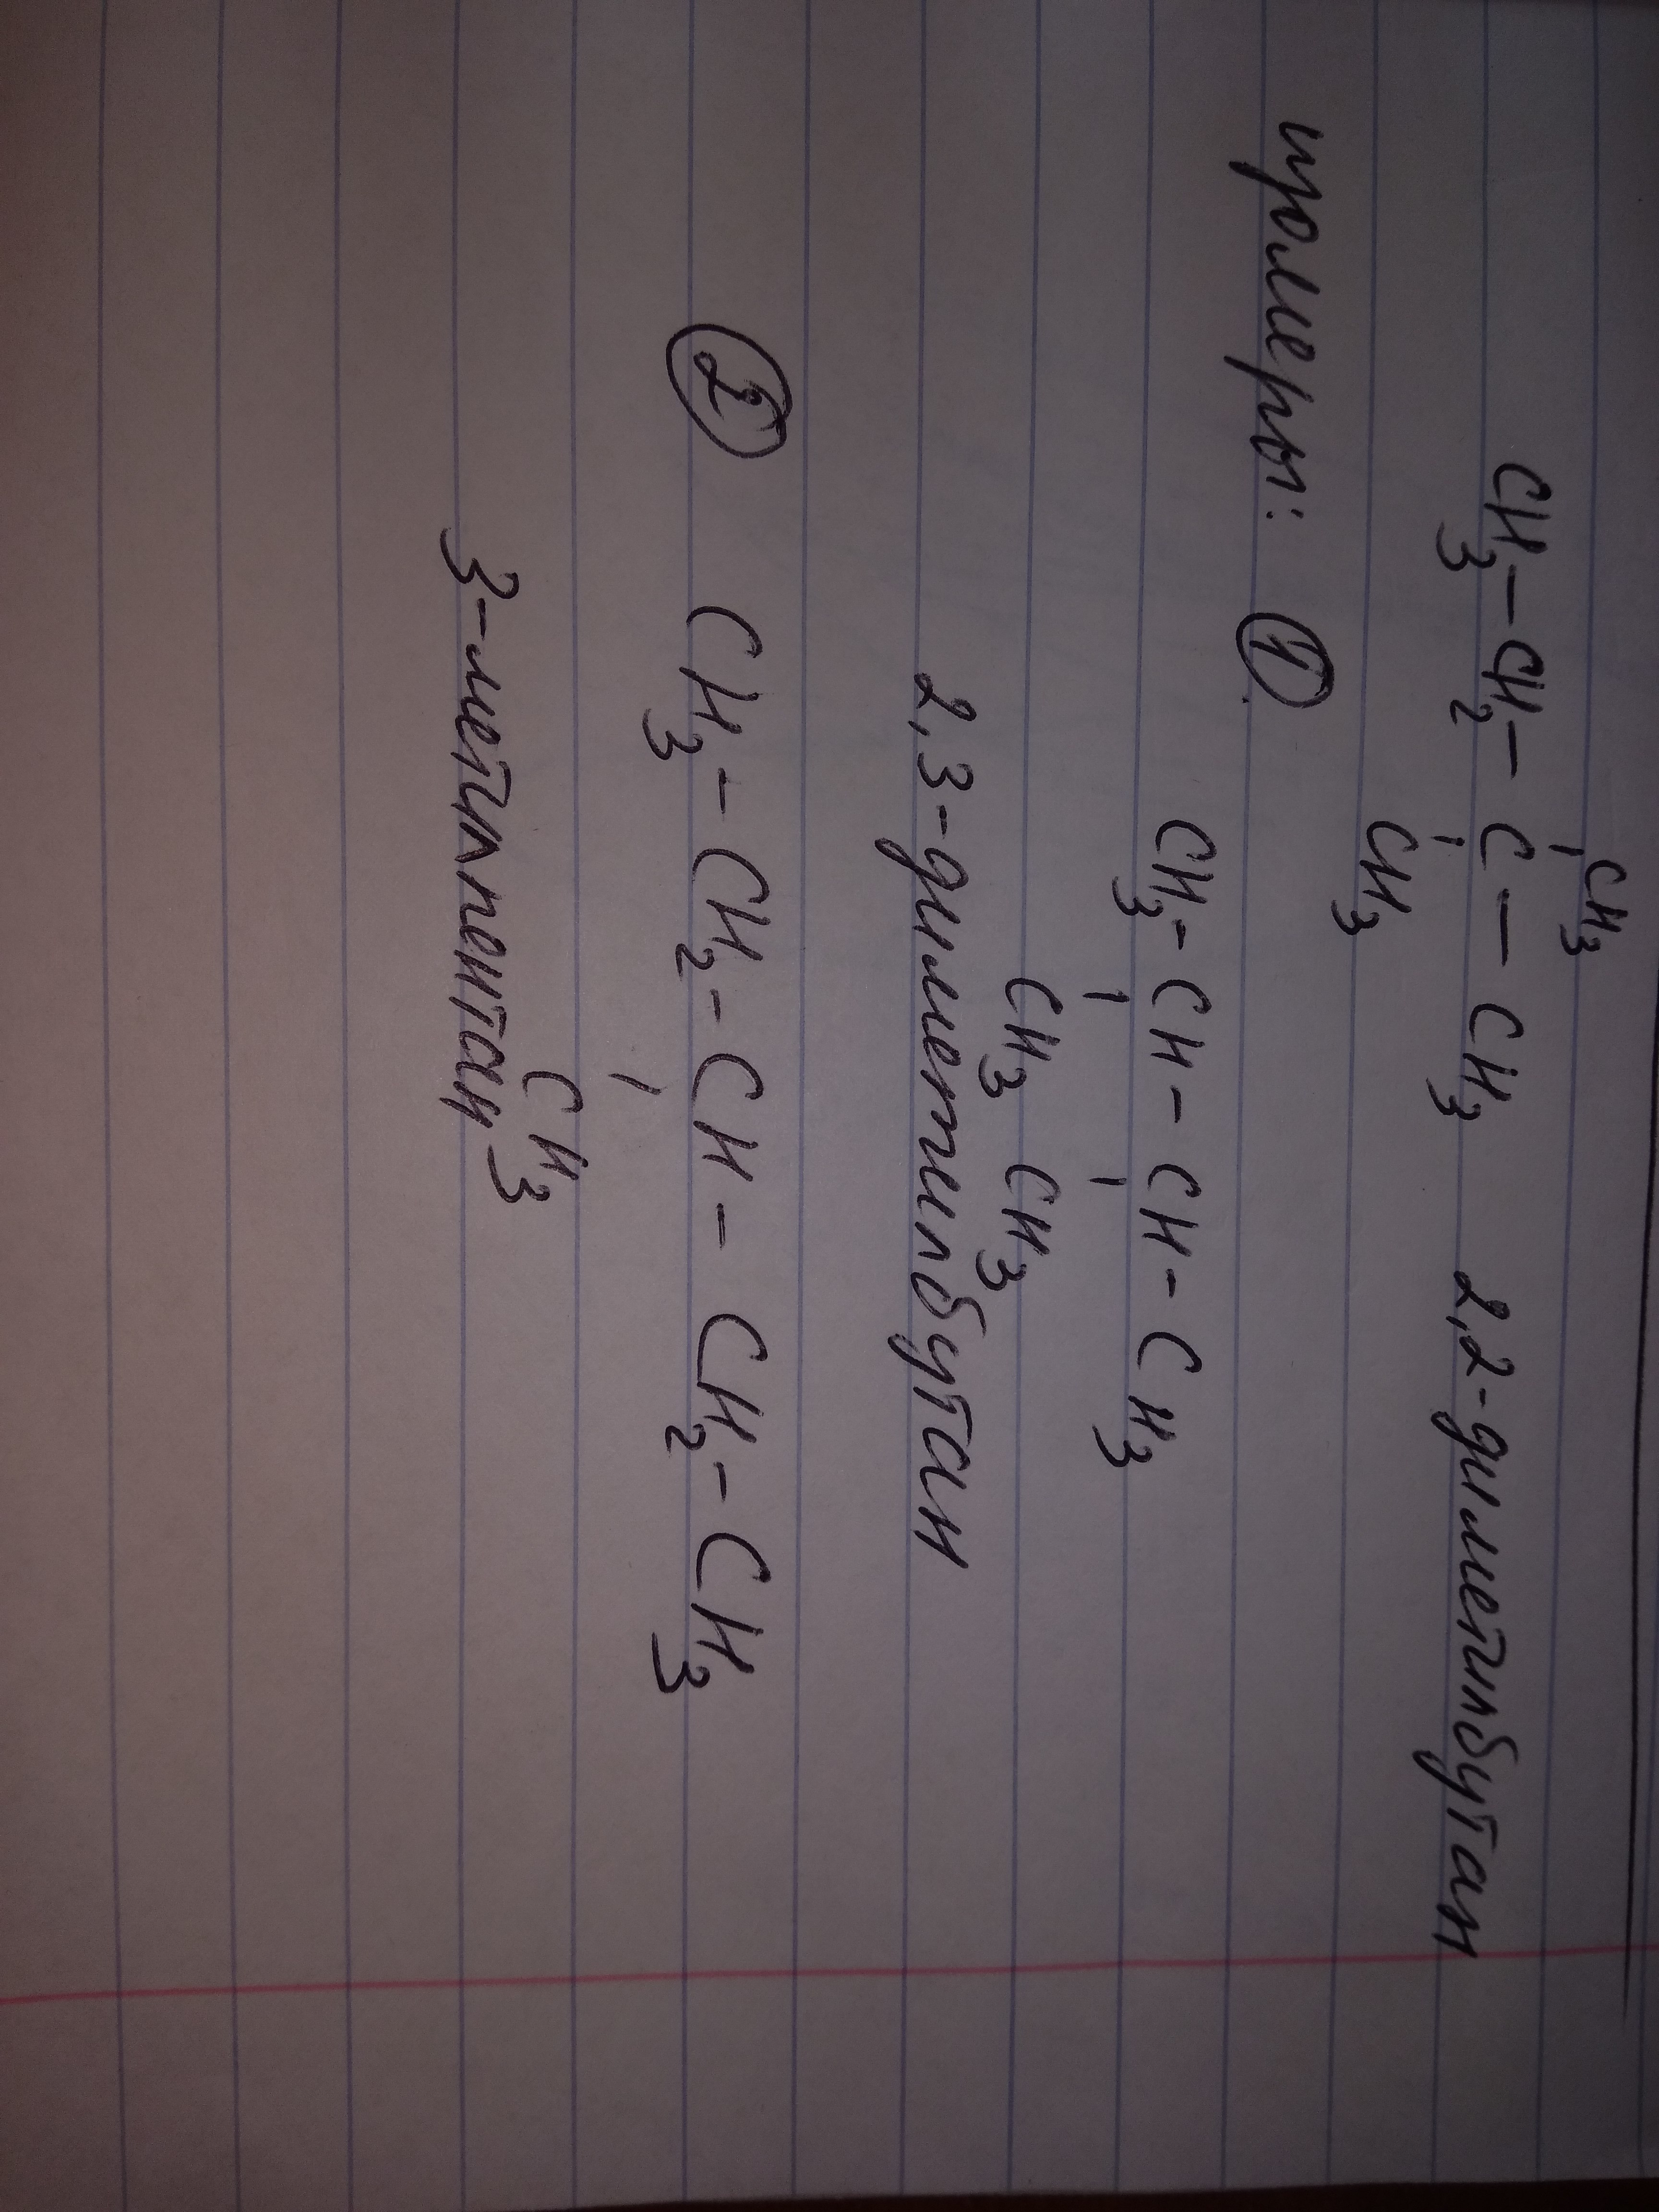 CH3
CH3-CH2-C-CH3 2,2-диметилбутан
CH3
изомеры: ①
CH3-CH-CH-CH3
CH3 CH3
2,3-диметилбутан
② CH3-CH2-CH-CH2-CH3
CH3
3-метилпентан